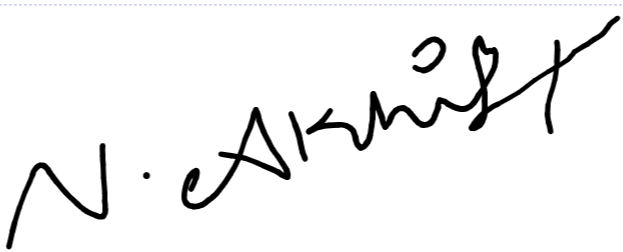 N. Akhil